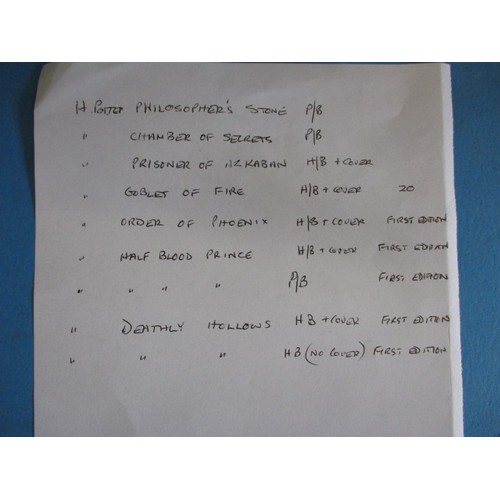 H. Potter PHILOSOPHER'S STONE P/B
" CHAMBER OF SECRETS P/B
" PRISONER OF AZKABAN H/B + COVER
" GOBLET OF FIRE H/B + COVER 20
" ORDER OF PHOENIX H/B + COVER FIRST EDITION
" HALF BLOOD PRINCE H/B + COVER FIRST EDITION
" " " " P/B FIRST EDITION
" DEATHLY HOLLOWS HB + COVER FIRST EDITION
" " " HB (NO COVER) FIRST EDITION